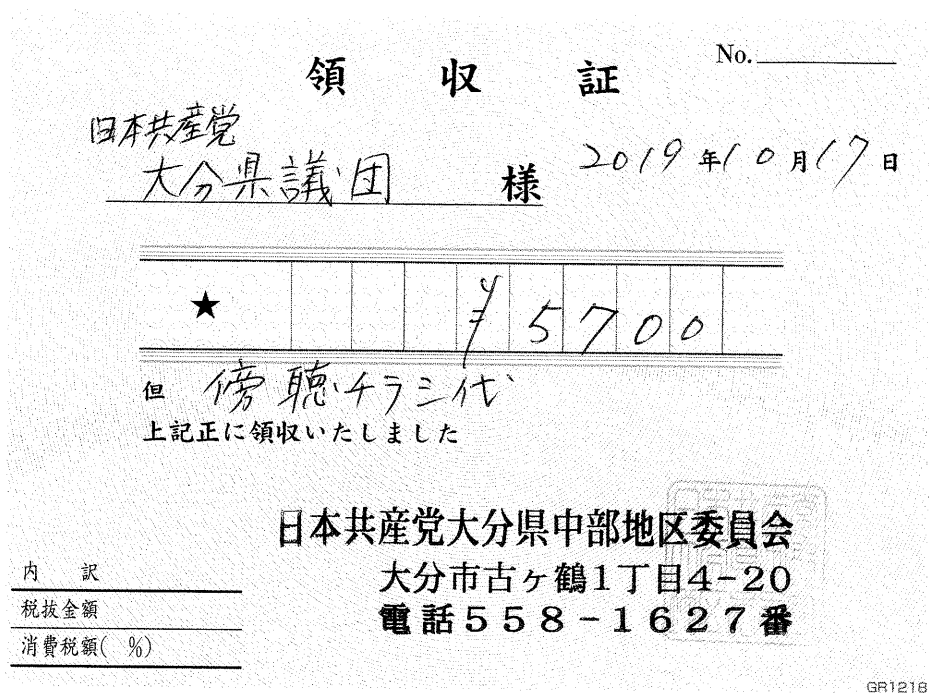 領収証
No.
日本共産党
大分県議団 様
2019年10月17日
★ ¥5700
但 傍聴チラシ代
上記正に領収いたしました
日本共産党大分県中部地区委員会
大分市古ヶ鶴1丁目4-20
電話558-1627番
内訳
税抜金額
消費税額( %)
GR1218